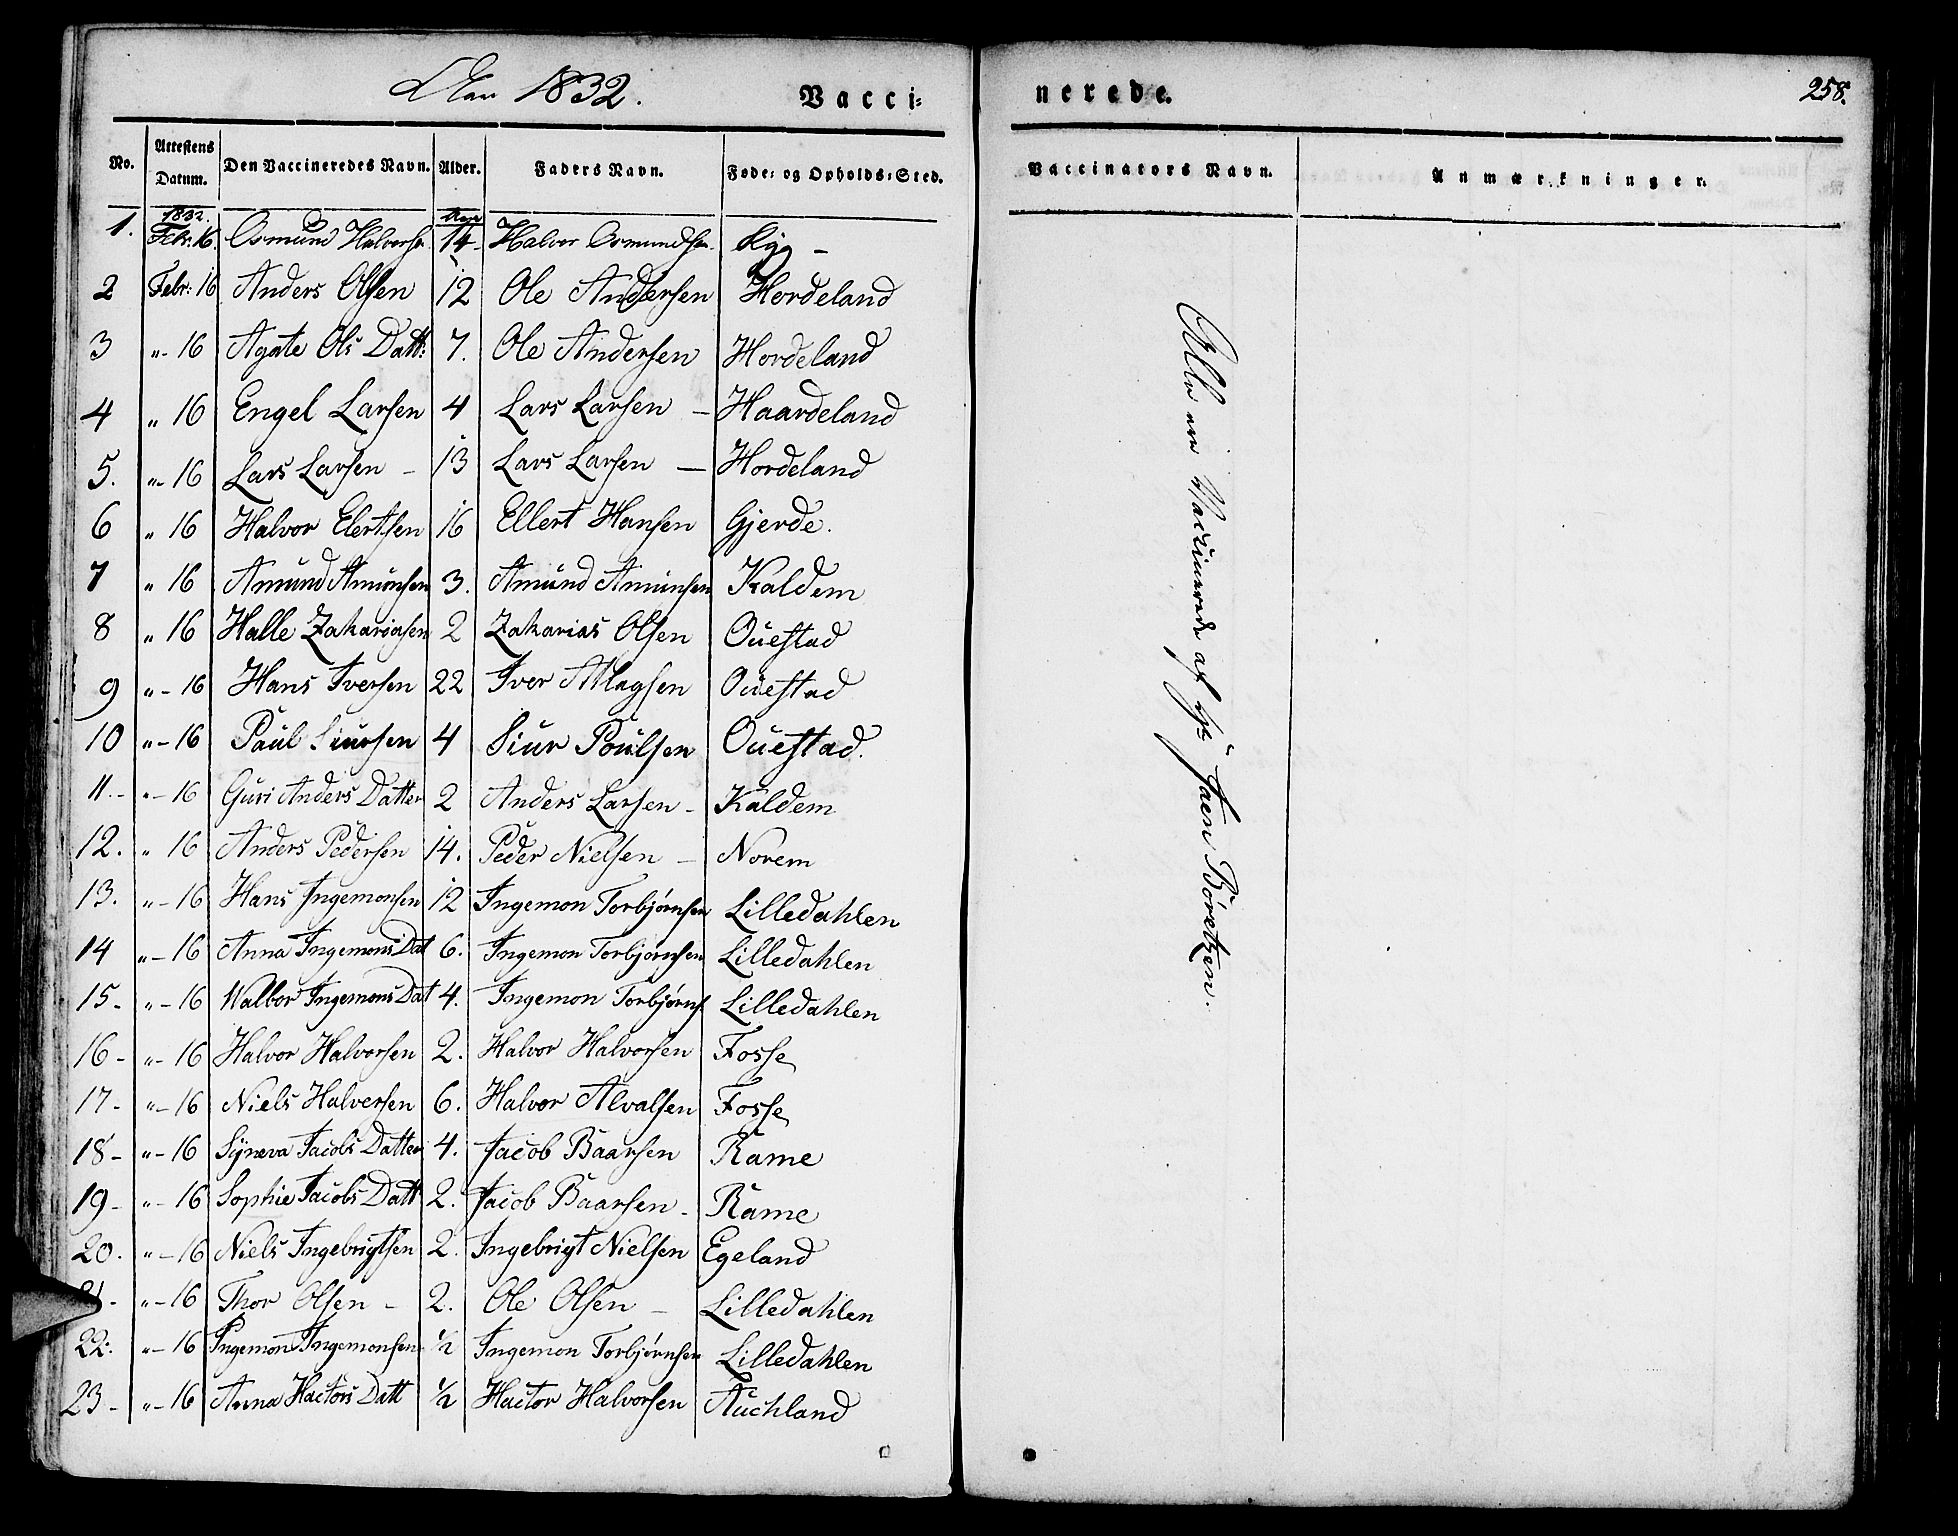 Aar 1832. Vaccinerede. 258.
No. Attestens Datum. Den Vaccineredes Navn. Alder. Faders Navn. Føde: og Opholds:Sted. Vaccinators Navn. Anmærkninger.
1. 1832. Febr. 16. Osmund Halvorse Aar 14 - Halvor Osmundsen. Ry -
2 Febr: 16 Anders Olsen 12 Ole Andersen Hordeland
3 "- 16 Agate Ols Datt: 7. Ole Andersen Hordeland
4 " 16 Engel Larsen 4 Lars Larsen - Haardeland
5. "- 16 Lars Larsen - 13 Lars Larsen - Hordeland
6 " 16 Halvor Elertsen 16 Ellert Hansen Gjerde.
7 " 16 Amund Amunsen 3. Amund Amunsen Kaldem
8 " 16 Halle Zakariasen 2 Zakarias Olsen Ouestad
9 "- 16 Hans Iversen 22 Iver Magsen Ouestad
10 "- 16 Paul Siursen 4 Siur Poulsen Ouestad.
11.- "- 16 Guri Anders Datter 2 Anders Larsen - Kaldem
12. " 16 Anders Pedersen 14. Peder Nielsen - Norem
13. "- 16 Hans Ingemonsen 12 Ingemon Torbjørnsen Lilledahlen
14 "- 16 Anna Ingemons Dat 6. Ingemon Torbjørnsen Lilledahlen
15- "- 16 Walbor Ingemons Dat 4. Ingemon Torbjørns. Lilledahlen
16- "- 16 Halvor Halvorsen 2. Halvor Halvorsen Fosse
17- "- 16 Niels Halversen 6. Halvor Alvalsen Fosse
18- "- 16 Syneva Jacobs Datter 4. Jacob Baarsen Rame
19- "- 16 Sophie Jacobs Datt 2. Jacob Baarsen - Rame
20. "- 16 Niels Ingebrigtsen 2. Ingebrigt Nielsen Egeland
21- "- 16 Thor Olsen - 2. Ole Olsen - Lilledahlen
22: "- 16 Ingemon Ingemonsen ½ Ingemon Torbjørnsen Lilledahlen
23- "- 16 Anna Hactors Datt ½ Hactor Halvorsen Auchland
Alle ere Vaccinerede af Hr Jaen Børetzen.